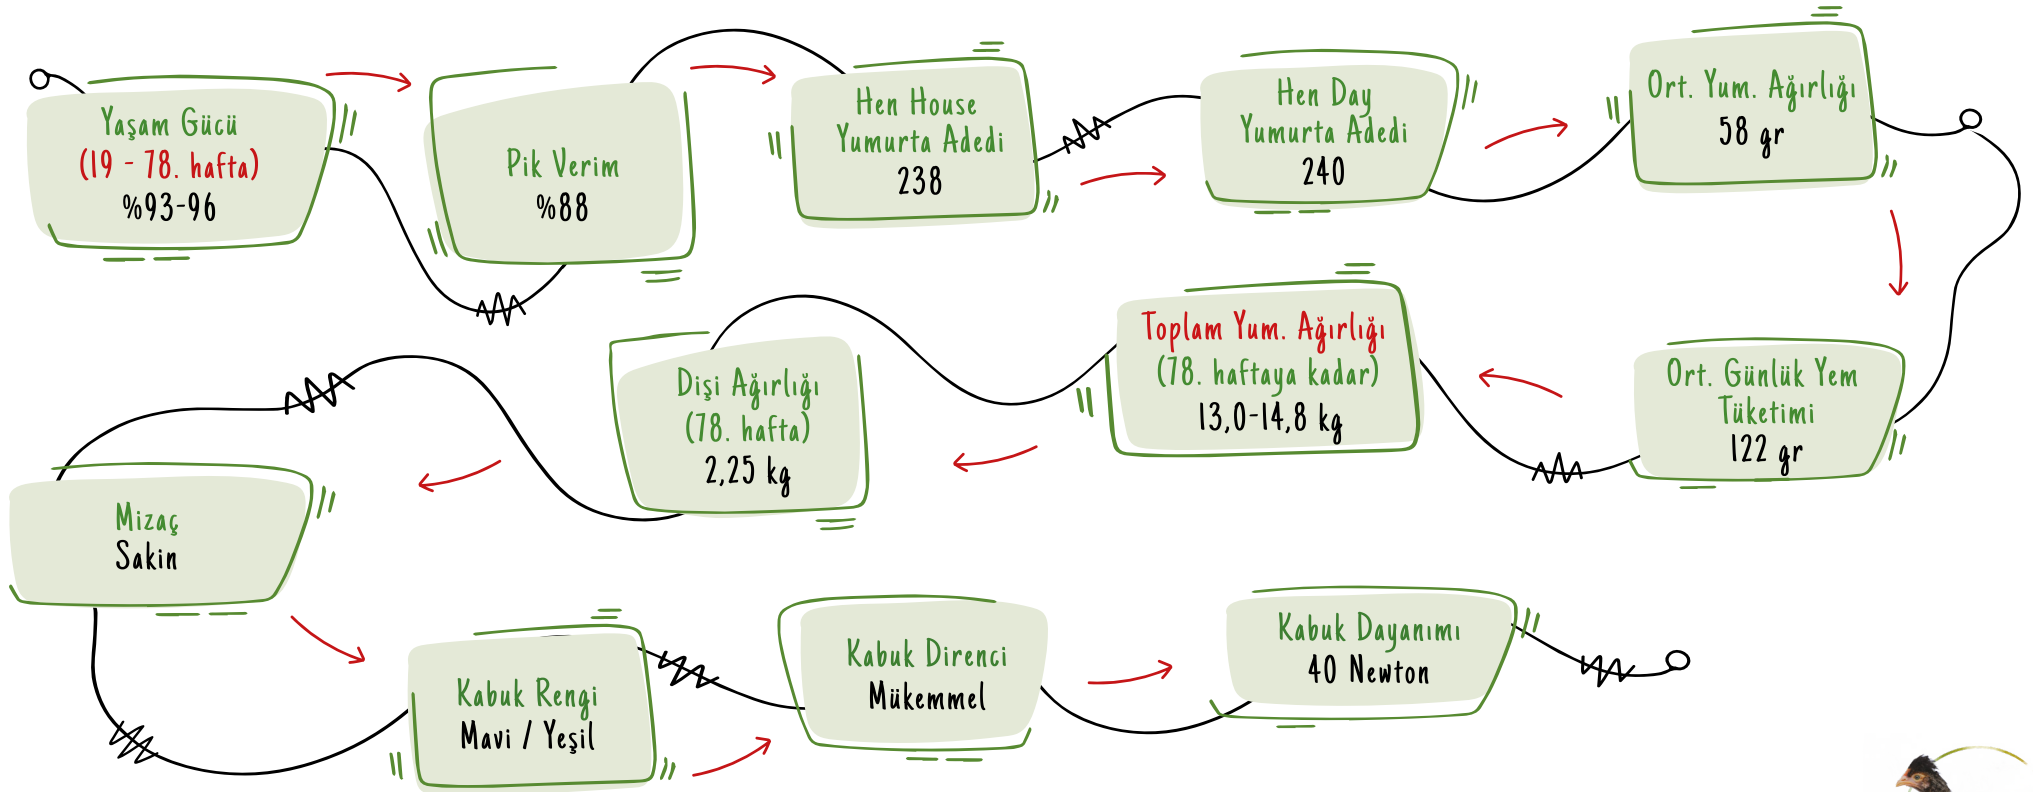 Yaşam Gücü
(19 - 78. hafta)
%93-96
Pik Verim
%88
Hen House
Yumurta Adedi
238
Hen Day
Yumurta Adedi
240
Ort. Yum. Ağırlığı
58 gr
Ort. Günlük Yem
Tüketimi
122 gr
Toplam Yum. Ağırlığı
(78. haftaya kadar)
13,0-14,8 kg
Dişi Ağırlığı
(78. hafta)
2,25 kg
Mizaç
Sakin
Kabuk Rengi
Mavi / Yeşil
Kabuk Direnci
Mükemmel
Kabuk Dayanımı
40 Newton